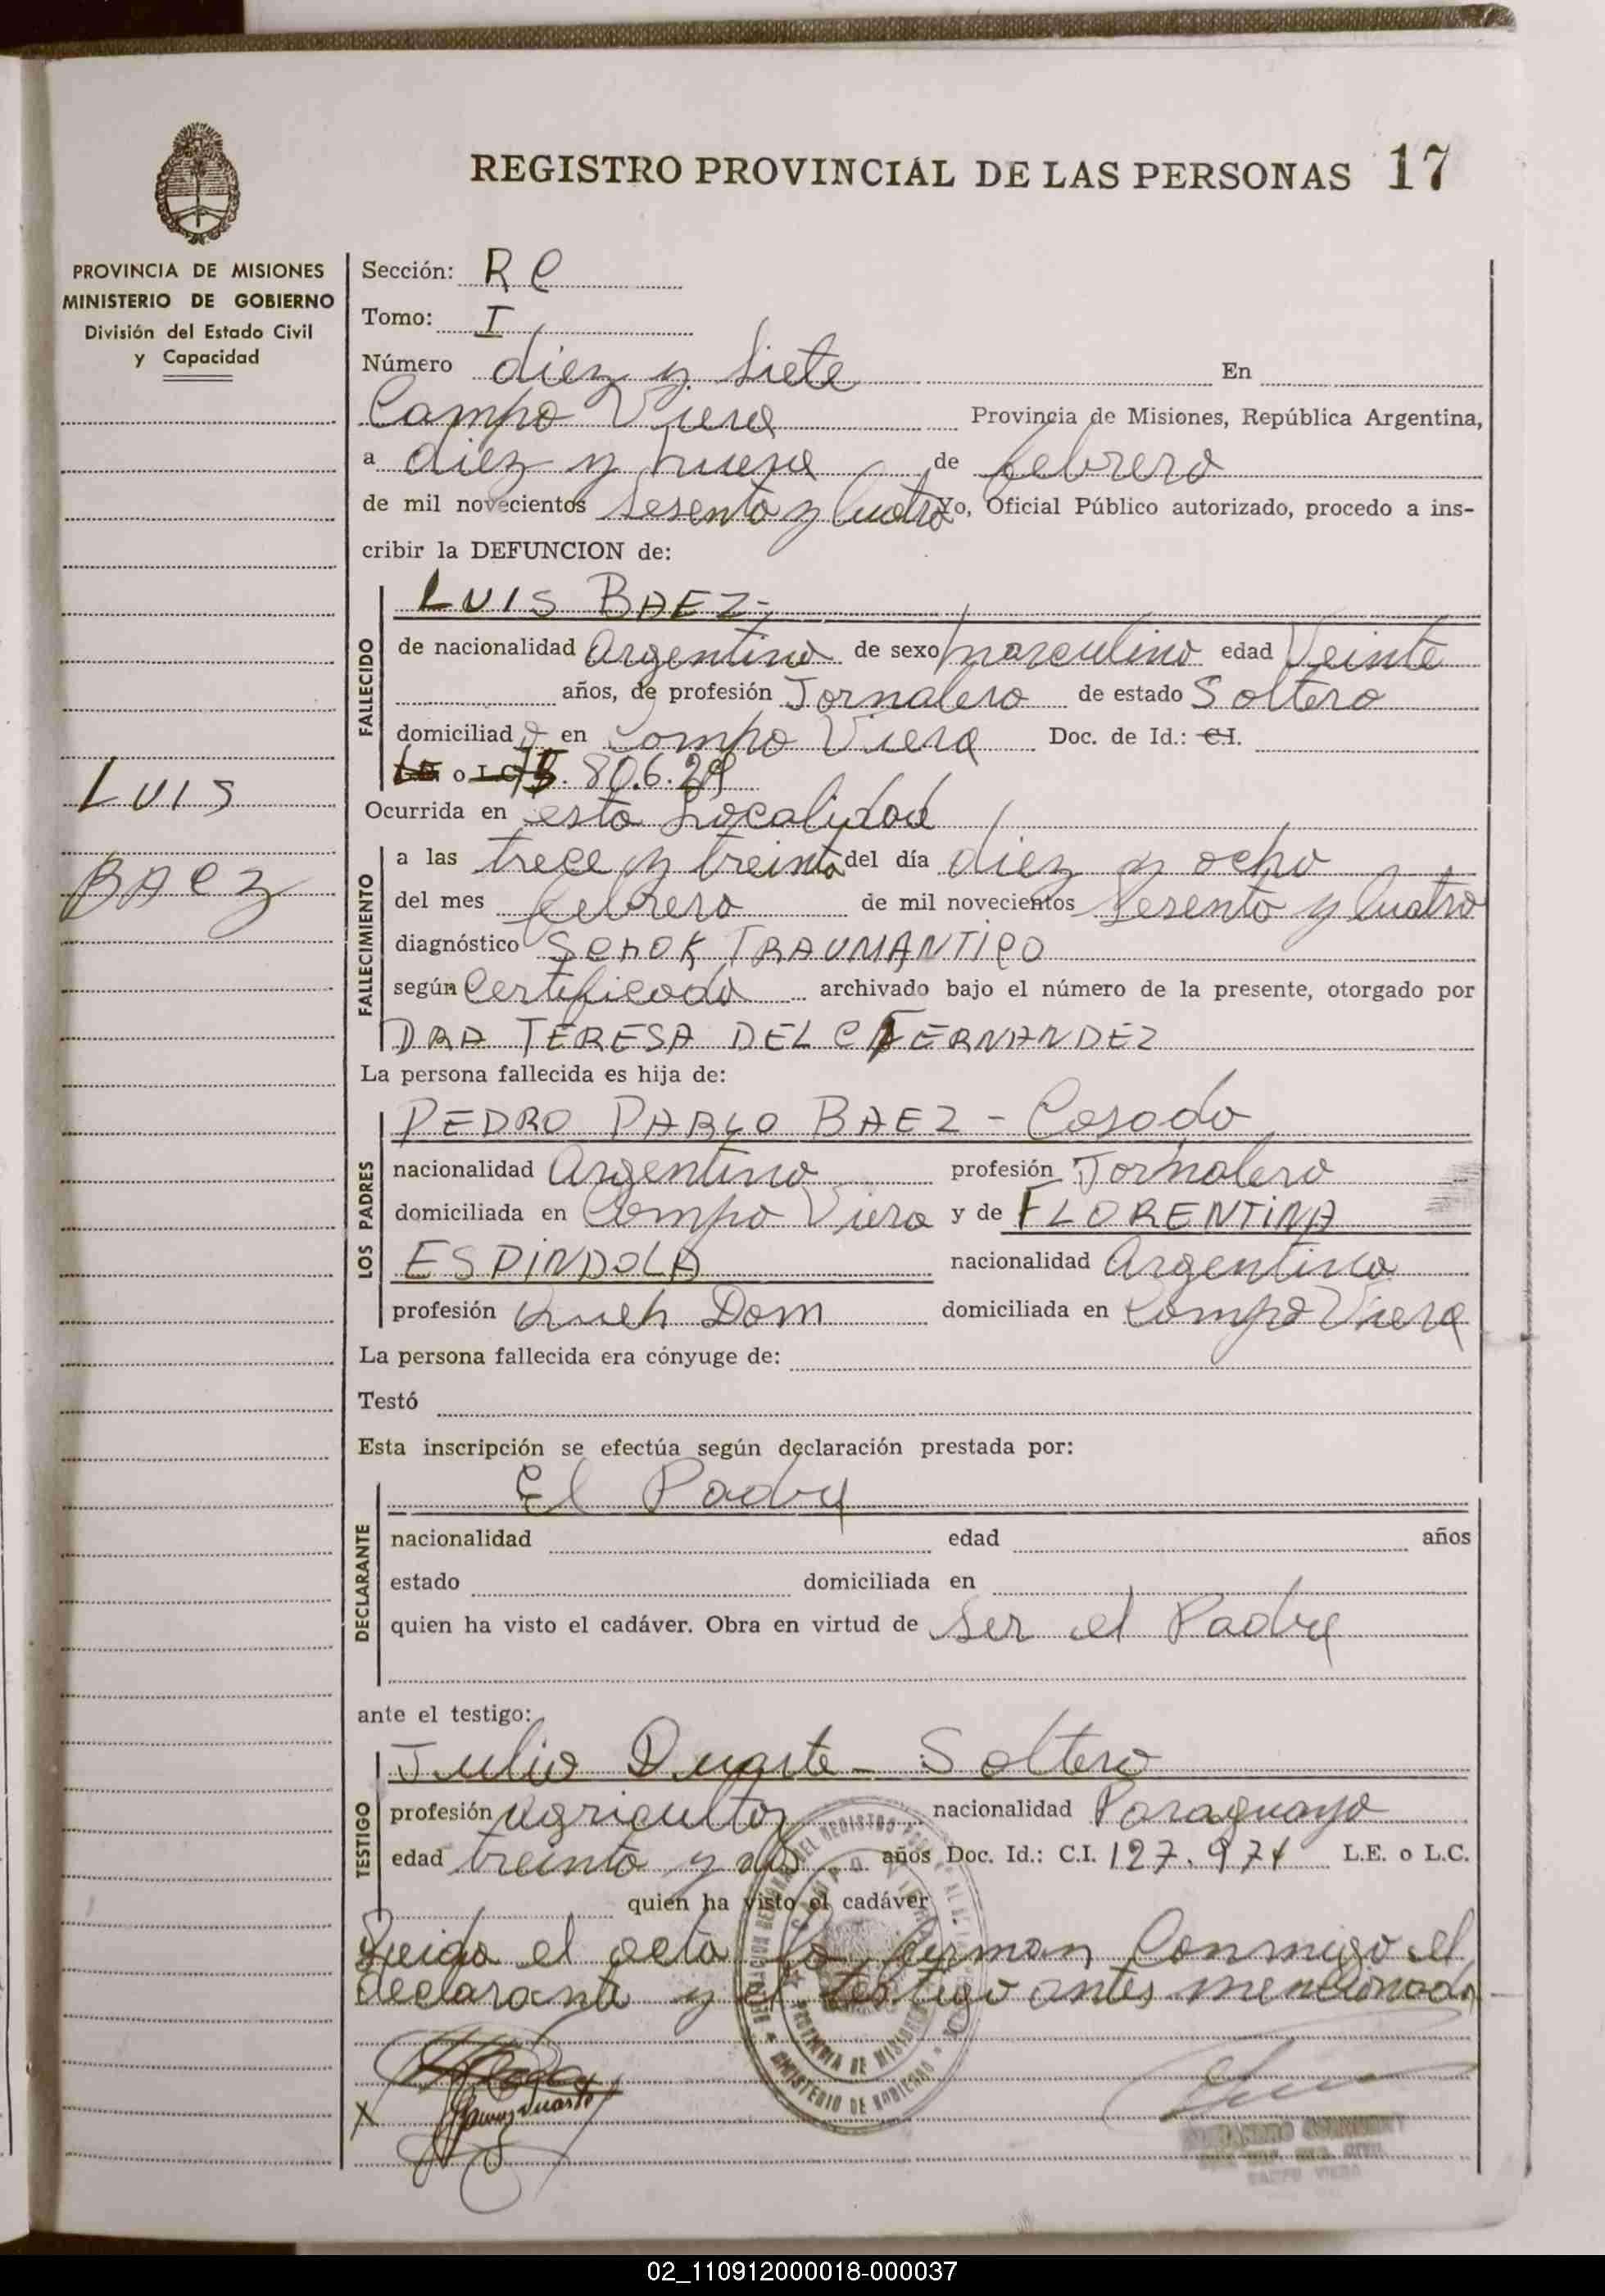 REGISTRO PROVINCIAL DE LAS PERSONAS 17
PROVINCIA DE MISIONES
MINISTERIO DE GOBIERNO
División del Estado Civil
y Capacidad
LUIS
BAEZ
Sección: RC
Tomo: I
Número diez y siete En
Campo Viera Provincia de Misiones, República Argentina,
a diez y nueve de febrero
de mil novecientos sesenta y cuatro Yo, Oficial Público autorizado, procedo a ins-
cribir la DEFUNCION de:
FALLECIDO
LUIS BAEZ-
de nacionalidad Argentino de sexo masculino edad Veinte
años, de profesión Jornalero de estado Soltero
domiciliado en Campo Viera Doc. de Id.: C.I.
o
Ocurrida en esta Localidad
FALLECIMIENTO
a las trece y treinta del día diez y ocho
del mes febrero de mil novecientos sesenta y cuatro
diagnóstico SCHOK TRAUMANTICO
según Certificado archivado bajo el número de la presente, otorgado por
DRA TERESA DEL C FERNANDEZ
La persona fallecida es hija de:
LOS PADRES
PEDRO PABLO BAEZ - Casado
nacionalidad Argentino profesión Jornalero
domiciliada en Campo Viera y de FLORENTINA
ESPINDOLA nacionalidad Argentina
profesión Queh Dom domiciliada en Campo Viera
La persona fallecida era cónyuge de:
Testó
Esta inscripción se efectúa según declaración prestada por:
DECLARANTE
El Padre
nacionalidad edad años
estado domiciliada en
quien ha visto el cadáver. Obra en virtud de ser el Padre
ante el testigo:
TESTIGO
Julio Duarte - Soltero
profesión Agricultor nacionalidad Paraguayo
edad treinta y años Doc. Id.: C.I. 127.974 L.E. o L.C.
quien ha visto el cadáver
Leida el acta la firman Conmigo el
declarante y el testigo antes mencionado
PROVINCIA DE MISIONES
MINISTERIO DE GOBIERNO
Duarte
02_110912000018-000037